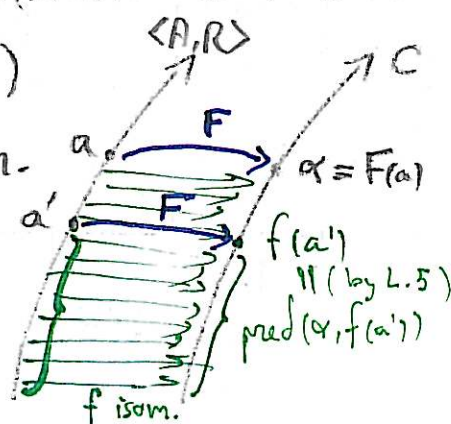 <A,R>
C
)
F
a
α = F(a)
n.
F
a'
f(a')
|| (by L.5)
pred(α, f(a'))
f isom.